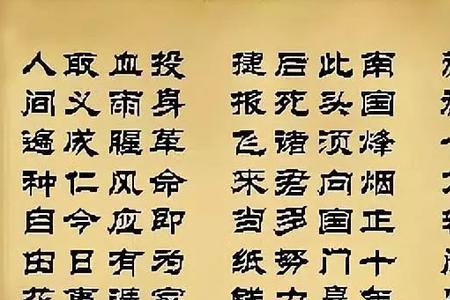 南国烽烟正十年
此头须向国门悬
后死诸君多努力
捷报飞来当纸钱
投身革命即为家
血雨腥风应有涯
取义成仁今日事
人间遍种自由花